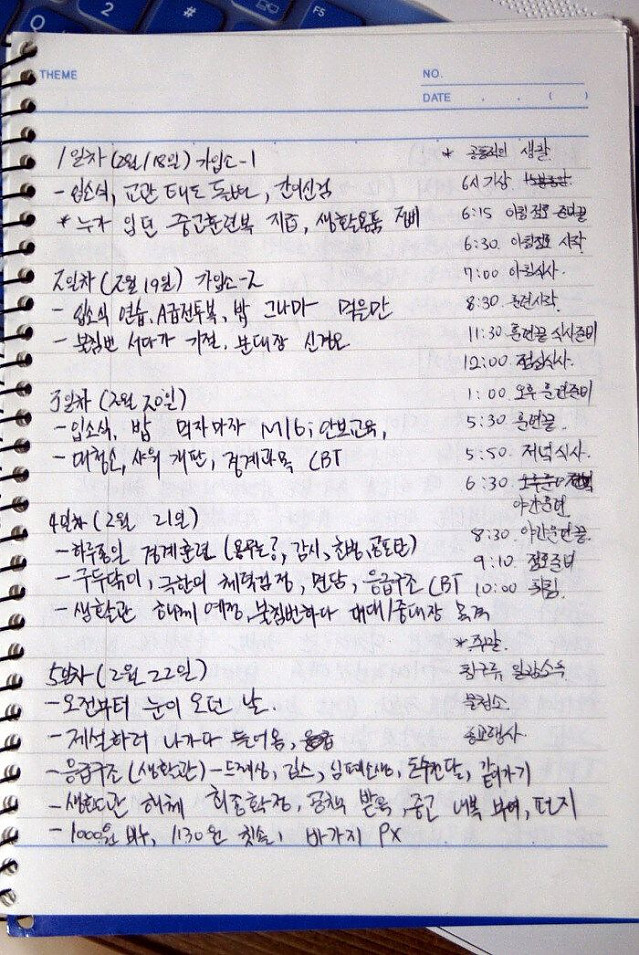 THEME
NO.
DATE . . ( )
1일차 (2월 18일) 가입소-1
- 입소식, 교관 태도 돌변, 간이신검
* 누가 입던 중고훈련복 지급, 생활용품 정비
2일차 (2월 19일) 가입소-2
- 입소식 연습, A급전투복, 밥 그나마 먹을만
- 불침번 서다가 기절. 분대장 신경모
3일차 (2월 20일)
- 입소식, 밥 먹자마자 M16, 안보교육,
- 대청소, 샤워 개판, 경계과목 CBT
4일차 (2월 21일)
- 하루종일 경계훈련 (감시,
- 구두닦이, 극한의 체력검정, 면담, 응급구조 CBT
- 생활관 해체 예정, 불침번하다 대대/중대장 목격
5일차 (2월 22일)
- 오전부터 눈이 오던 날.
- 제설하러 나가다 들어옴,
- 응급구조 (생활관) - 드레싱, 깁스, 심폐소생,
- 생활관 해체 최종확정, 공책 받음, 중고 내복 부여, 편지
- 1000원 1130원 칫솔, 바가지 PX
* 공통적인 생활
6시 기상
6:15 아침점호 준비
6:30 아침점호 시작
7:00 아침식사.
8:30 훈련시작
11:30 훈련끝 식사준비
12:00 점심식사.
1:00 오후 훈련준비
5:30 훈련끝.
5:50 저녁식사.
6:30
야간훈련
8:30 야간훈련끝.
9:10 점호준비
10:00 취침.
* 주말.
전투화 일광소독
물청소.
종교행사.